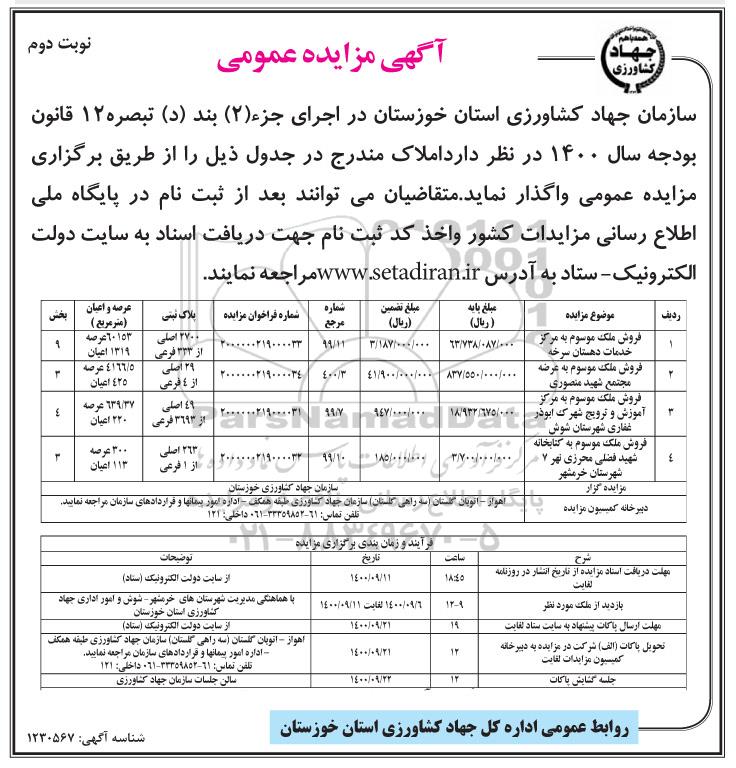 نوبت دوم
آگهی مزایده عمومی
همه با هم
جهاد
کشاورزی
سازمان جهاد کشاورزی استان خوزستان در اجرای جزء(۲) بند (د) تبصره۱۲ قانون
بودجه سال ۱۴۰۰ در نظر دارداملاک مندرج در جدول ذیل را از طریق برگزاری
مزایده عمومی واگذار نماید.متقاضیان می توانند بعد از ثبت نام در پایگاه ملی
اطلاع رسانی مزایدات کشور واخذ کد ثبت نام جهت دریافت اسناد به سایت دولت
الکترونیک- ستاد به آدرس www.setadiran.ir مراجعه نمایند.
ردیف موضوع مزایده مبلغ پایه (ریال) مبلغ تضمین (ریال) شماره مرجع شماره فراخوان مزایده پلاک ثبتی عرصه و اعیان (مترمربع) بخش
۱ فروش ملک موسوم به مرکز خدمات دهستان سرخه ۶۳/۷۳۸/۰۸۷/۰۰۰ ۳/۱۸۷/۰۰۰/۰۰۰ ۹۹/۱۱ ۲۰۰۰۰۰۰۲۱۹۰۰۰۰۳۳ ۲۷۰۰ اصلی از ۳۳۳ فرعی ۶۰۱۵۳عرصه ۱۳۱۹ اعیان ۹
۲ فروش ملک موسوم به عرصه مجتمع شهید منصوری ۸۳۷/۵۵۰/۰۰۰/۰۰۰ ۴۱/۹۰۰/۰۰۰/۰۰۰ ۴۰۰/۳ ۲۰۰۰۰۰۰۲۱۹۰۰۰۰۳۴ ۲۹ اصلی از ۴ فرعی ۴۱۶۶/۵ عرصه ۴۲۵ اعیان ۳
۳ فروش ملک موسوم به مرکز آموزش و ترویج شهرک ابوذر غفاری شهرستان شوش ۱۸/۹۳۲/۶۷۵/۰۰۰ ۹۴۷/۰۰۰/۰۰۰ ۹۹/۷ ۲۰۰۰۰۰۰۲۱۹۰۰۰۰۳۱ ۴۹ اصلی از ۳۶۹۳ فرعی ۶۳۹/۳۷ عرصه ۲۲۰ اعیان ۴
۴ فروش ملک موسوم به کتابخانه شهید فضلی محرزی نهر ۷ شهرستان خرمشهر ۳/۷۰۰/۰۰۰/۰۰۰ ۱۸۵/۰۰۰/۰۰۰ ۹۹/۱۰ ۲۰۰۰۰۰۰۲۱۹۰۰۰۰۳۲ ۲۶۳ اصلی از ۱ فرعی ۳۰۰ عرصه ۱۱۳ اعیان ۳
مزایده گزار سازمان جهاد کشاورزی خوزستان
دبیرخانه کمیسیون مزایده اهواز – اتوبان گلستان (سه راهی گلستان) سازمان جهاد کشاورزی طبقه همکف – اداره امور پیمانها و قراردادهای سازمان مراجعه نمایید.
تلفن تماس: ۶۱-۳۳۳۵۹۸۵۲-۰۶۱ داخلی: ۱۲۱
ParsNamadData
مرکز فرآوری اطلاعات پارس نماد داده ها
۰۲۱-۸۸۳۴۹۶۷۰-۵
فرآیند و زمان بندی برگزاری مزایده
شرح ساعت تاریخ توضیحات
مهلت دریافت اسناد مزایده از تاریخ انتشار در روزنامه لغایت ۱۸:۴۵ ۱۴۰۰/۰۹/۱۱ از سایت دولت الکترونیک (ستاد)
بازدید از ملک مورد نظر ۹-۱۲ ۱۴۰۰/۰۹/۶ لغایت ۱۴۰۰/۰۹/۱۱ با هماهنگی مدیریت شهرستان های خرمشهر- شوش و امور اداری جهاد کشاورزی استان خوزستان
مهلت ارسال پاکات پیشنهاد به سایت ستاد لغایت ۱۹ ۱۴۰۰/۰۹/۲۱ از سایت دولت الکترونیک (ستاد)
تحویل پاکات (الف) شرکت در مزایده به دبیرخانه کمیسیون مزایدات لغایت ۱۲ ۱۴۰۰/۰۹/۲۱ اهواز – اتوبان گلستان (سه راهی گلستان) سازمان جهاد کشاورزی طبقه همکف – اداره امور پیمانها و قراردادهای سازمان مراجعه نمایید.
تلفن تماس: ۶۱-۳۳۳۵۹۸۵۲-۰۶۱ داخلی: ۱۲۱
جلسه گشایش پاکات ۱۲ ۱۴۰۰/۰۹/۲۲ سالن جلسات سازمان جهاد کشاورزی
روابط عمومی اداره کل جهاد کشاورزی استان خوزستان
شناسه آگهی: ۱۲۳۰۵۶۷